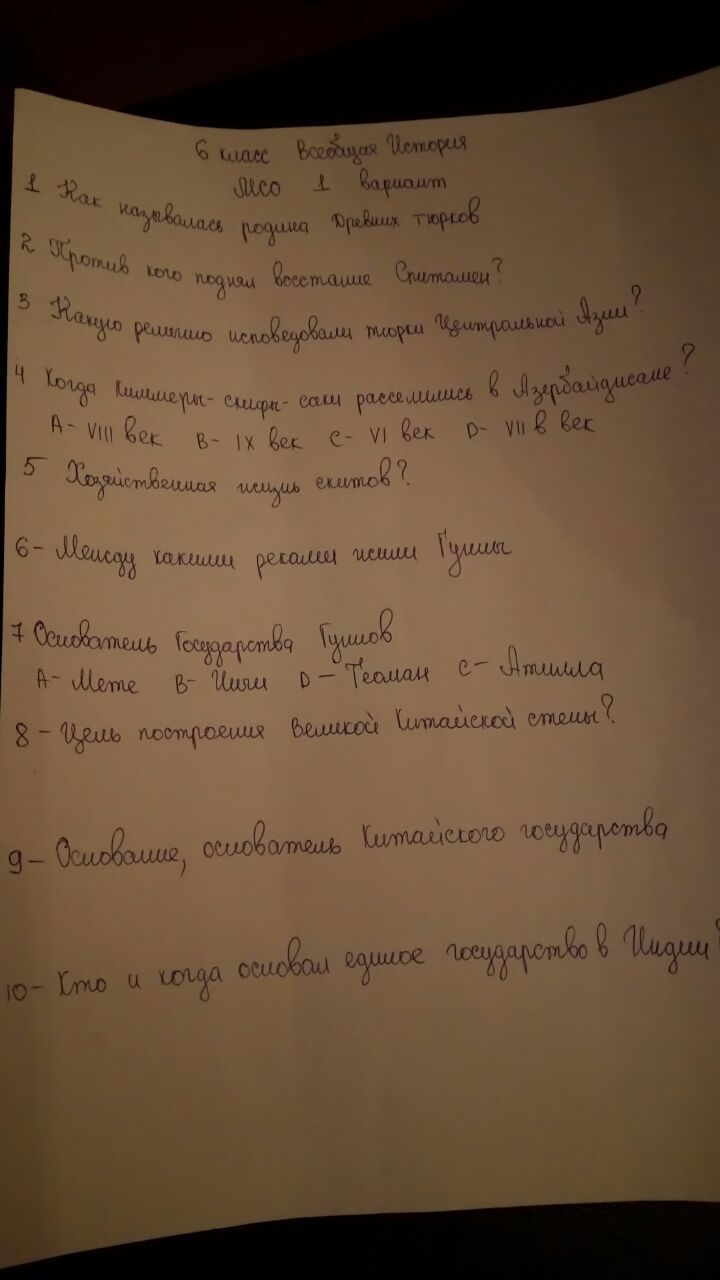 6 класс Всеобщая История
МСО 1 вариант
1 Как называлась родина Древних тюрков
2 Против кого поднял восстание Спитамен?
3 Какую религию исповедовали тюрки Центральной Азии?
4 Когда Киммеры-скифы-саки расселились в Азербайджане?
А- VIII век В- IX век С- VI век D- VII в век
5 Хозяйственная жизнь скитов?
6- Между какими реками жили Гунны
7 Основатель Государства Гуннов
А- Мете В- Чичи D- Теоман С- Аттила
8- Цель построения Великой Китайской стены?
9- Основание, основатель Китайского государства
10- Кто и когда основал единое государство в Индии?